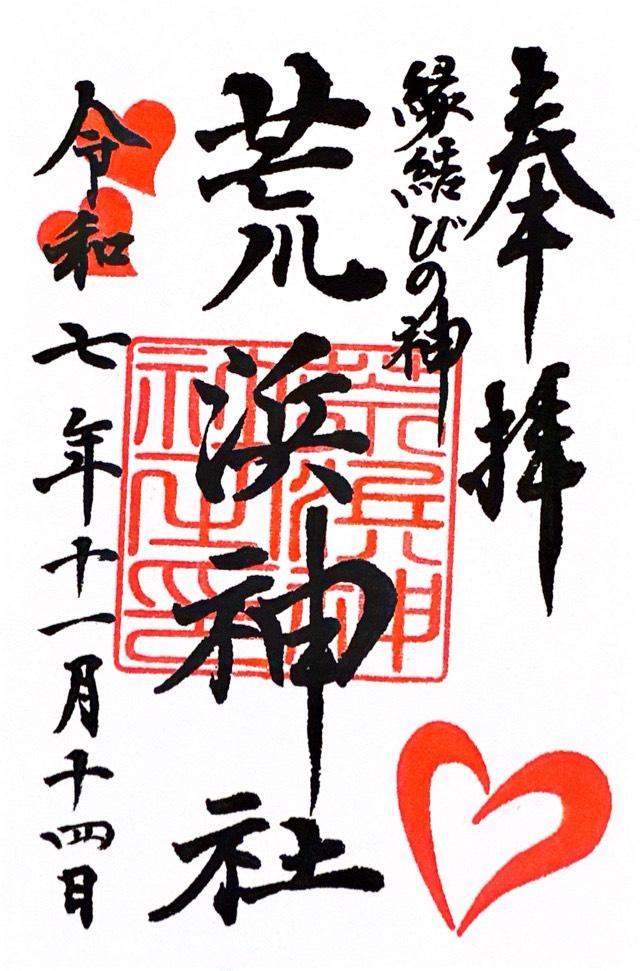 奉拝
縁結びの神
荒川浜神社
令和七年十一月十四日